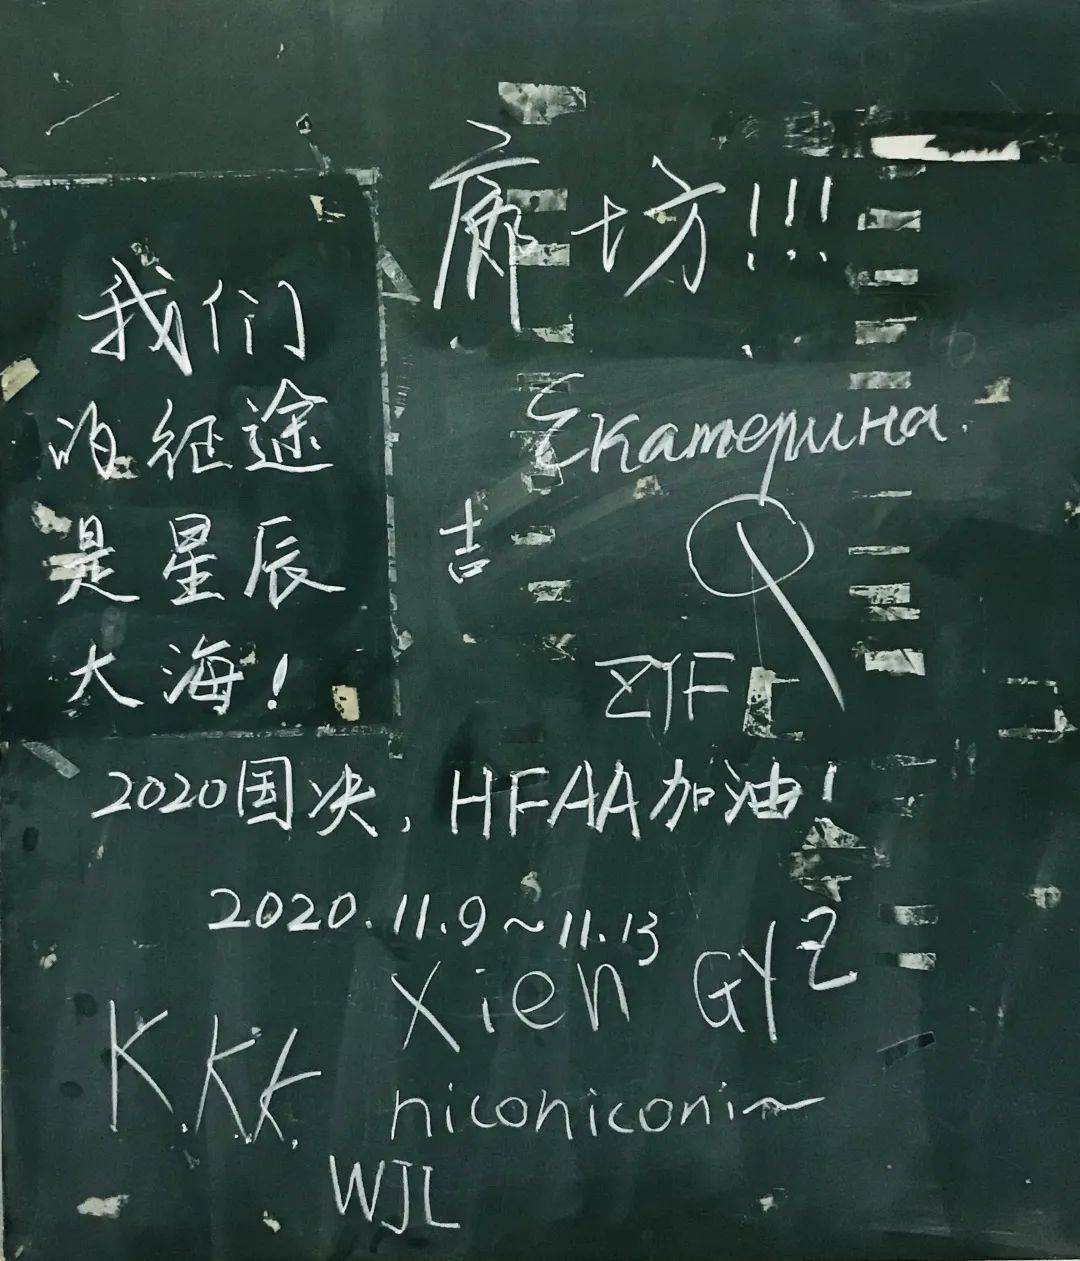 廊坊!!!
我们
的征途
是星辰
大海!
Екатерина.
吉
ZYF
2020国决,HFAA加油!
2020.11.9~11.13
Xien GYZ
K.K.K.
niconiconi~
WJL